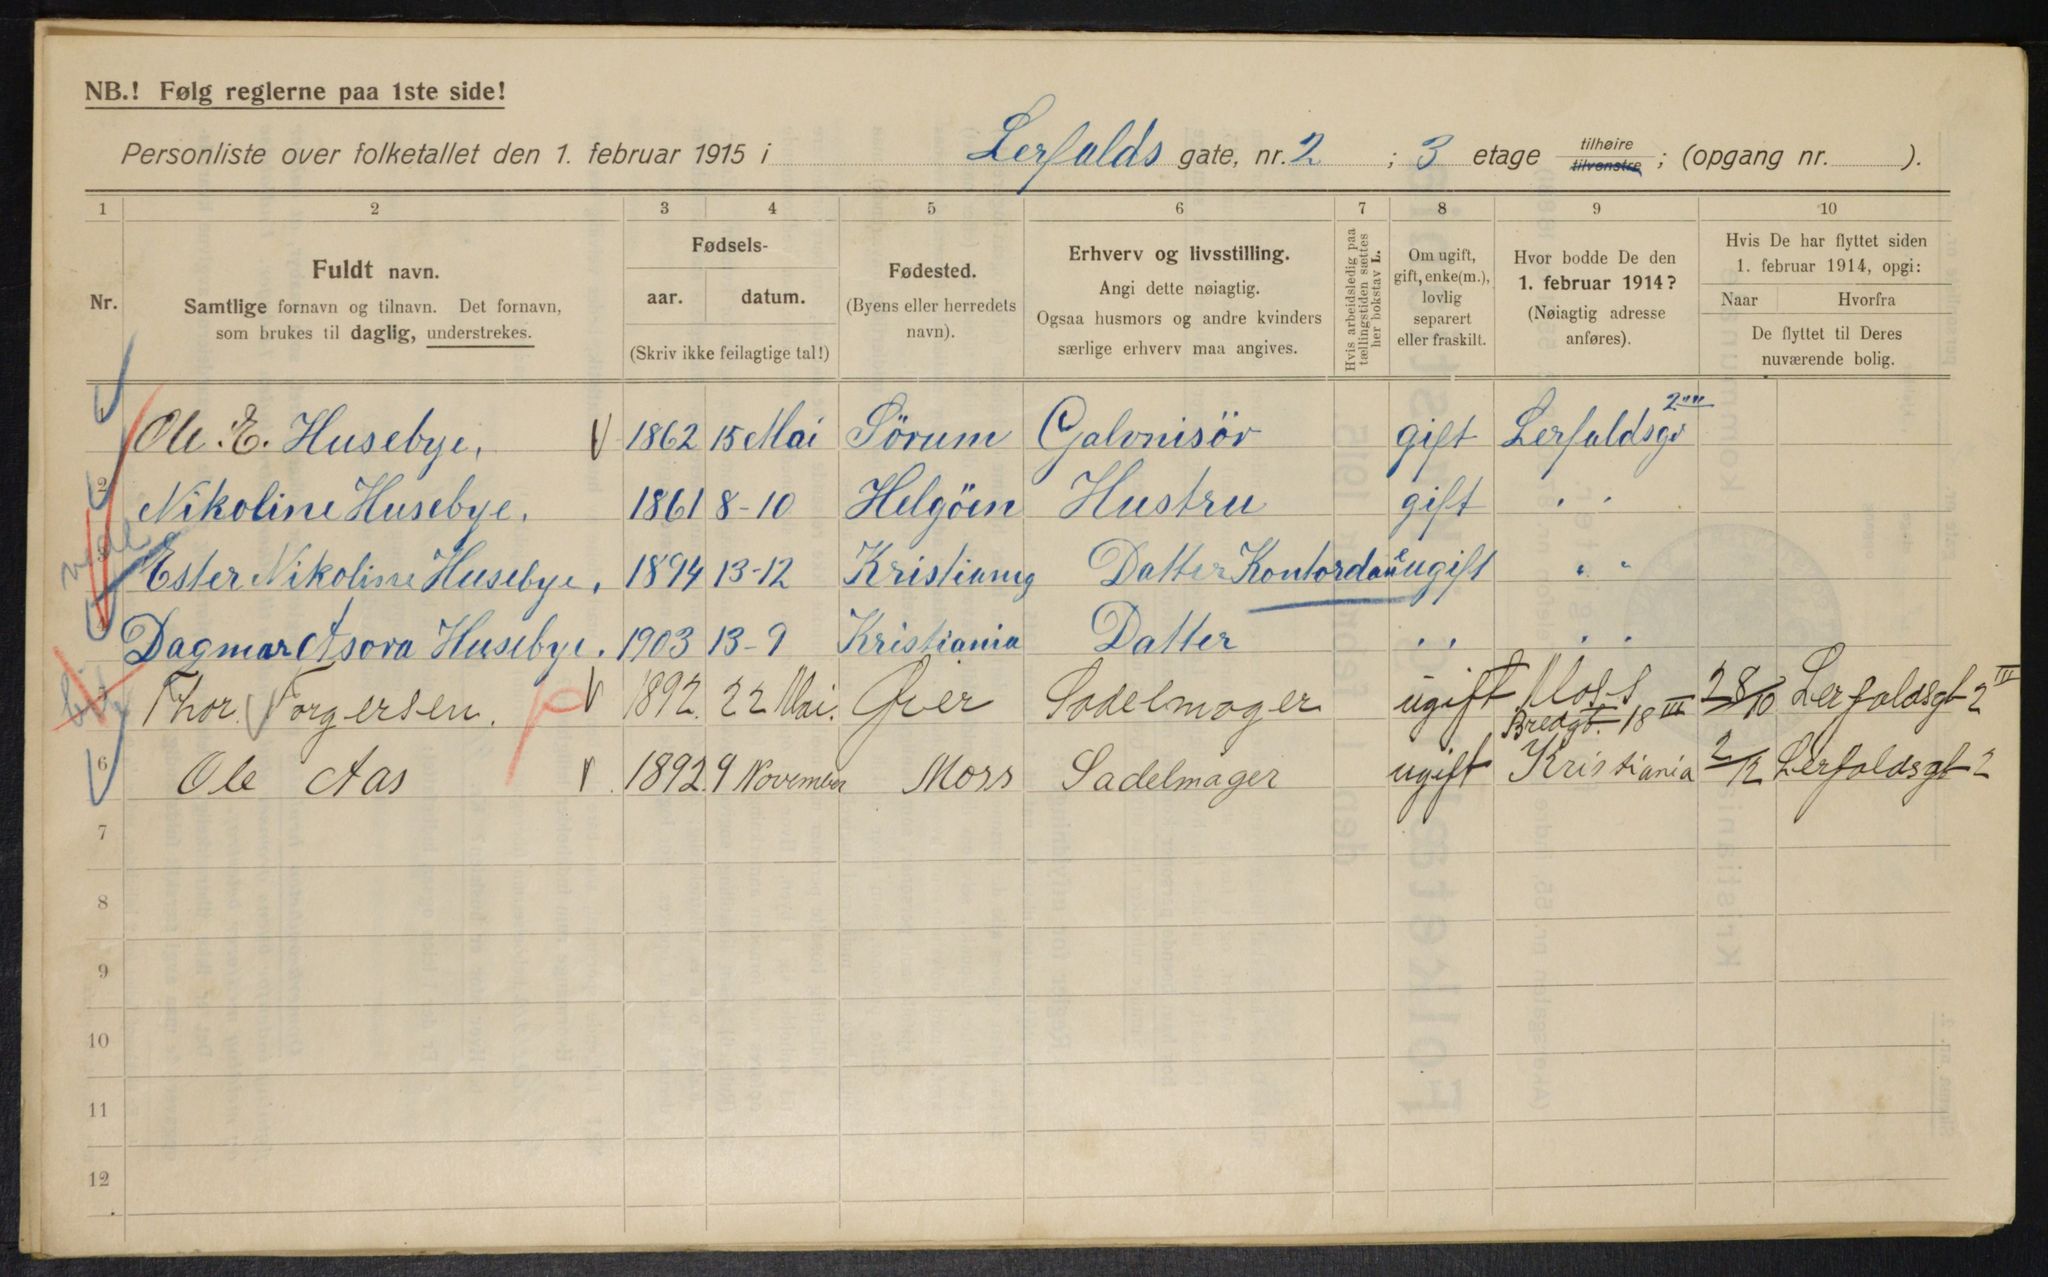 NB.! Følg reglerne paa 1ste side!
Personliste over folketallet den 1. februar 1915 i Lerfalds gate, nr. 2 ; 3 etage tilhøire tilvenstre ; (opgang nr. ).
1 2 3 4 5 6 7 8 9 10
Nr.
Fuldt navn.
Samtlige fornavn og tilnavn. Det fornavn,
som brukes til daglig, understrekes.
Fødsels-
aar. datum.
(Skriv ikke feilagtige tal!)
Fødested.
(Byens eller herredets
navn).
Erhverv og livsstilling.
Angi dette nøiagtig.
Ogsaa husmors og andre kvinders
særlige erhverv maa angives.
Hvis arbeidsledig paa
tællingstiden sættes
her bokstav L.
Om ugift,
gift, enke(m.),
lovlig
separert
eller fraskilt.
Hvor bodde De den
1. februar 1914?
(Nøiagtig adresse
anføres).
Hvis De har flyttet siden
1. februar 1914, opgi:
Naar Hvorfra
De flyttet til Deres
nuværende bolig.
1 Ole. E. Husebye, 1862 15 Mai Sörum Galvnisör gift Lerfaldsgt 2
2 Nikoline Husebye, 1861 8-10 Helgöen Hustru gift " "
3 Ester Nikoline Husebye, 1894 13-12 Kristiania Datter Kontordame ugift " "
4 Dagmar Asora Husebye. 1903 13-9 Kristiania Datter " " " "
5 Thor Torgersen. 1892. 22 Mai. Sadelmager ugift Moss 28/10 Lerfaldsgt 2 III
Bredgt. 18 III
6 Ole Aas 1892. 9 November Moss Sadelmager ugift Kristiania 2/12 Lerfaldsgt 2
7
8
9
10
11
12